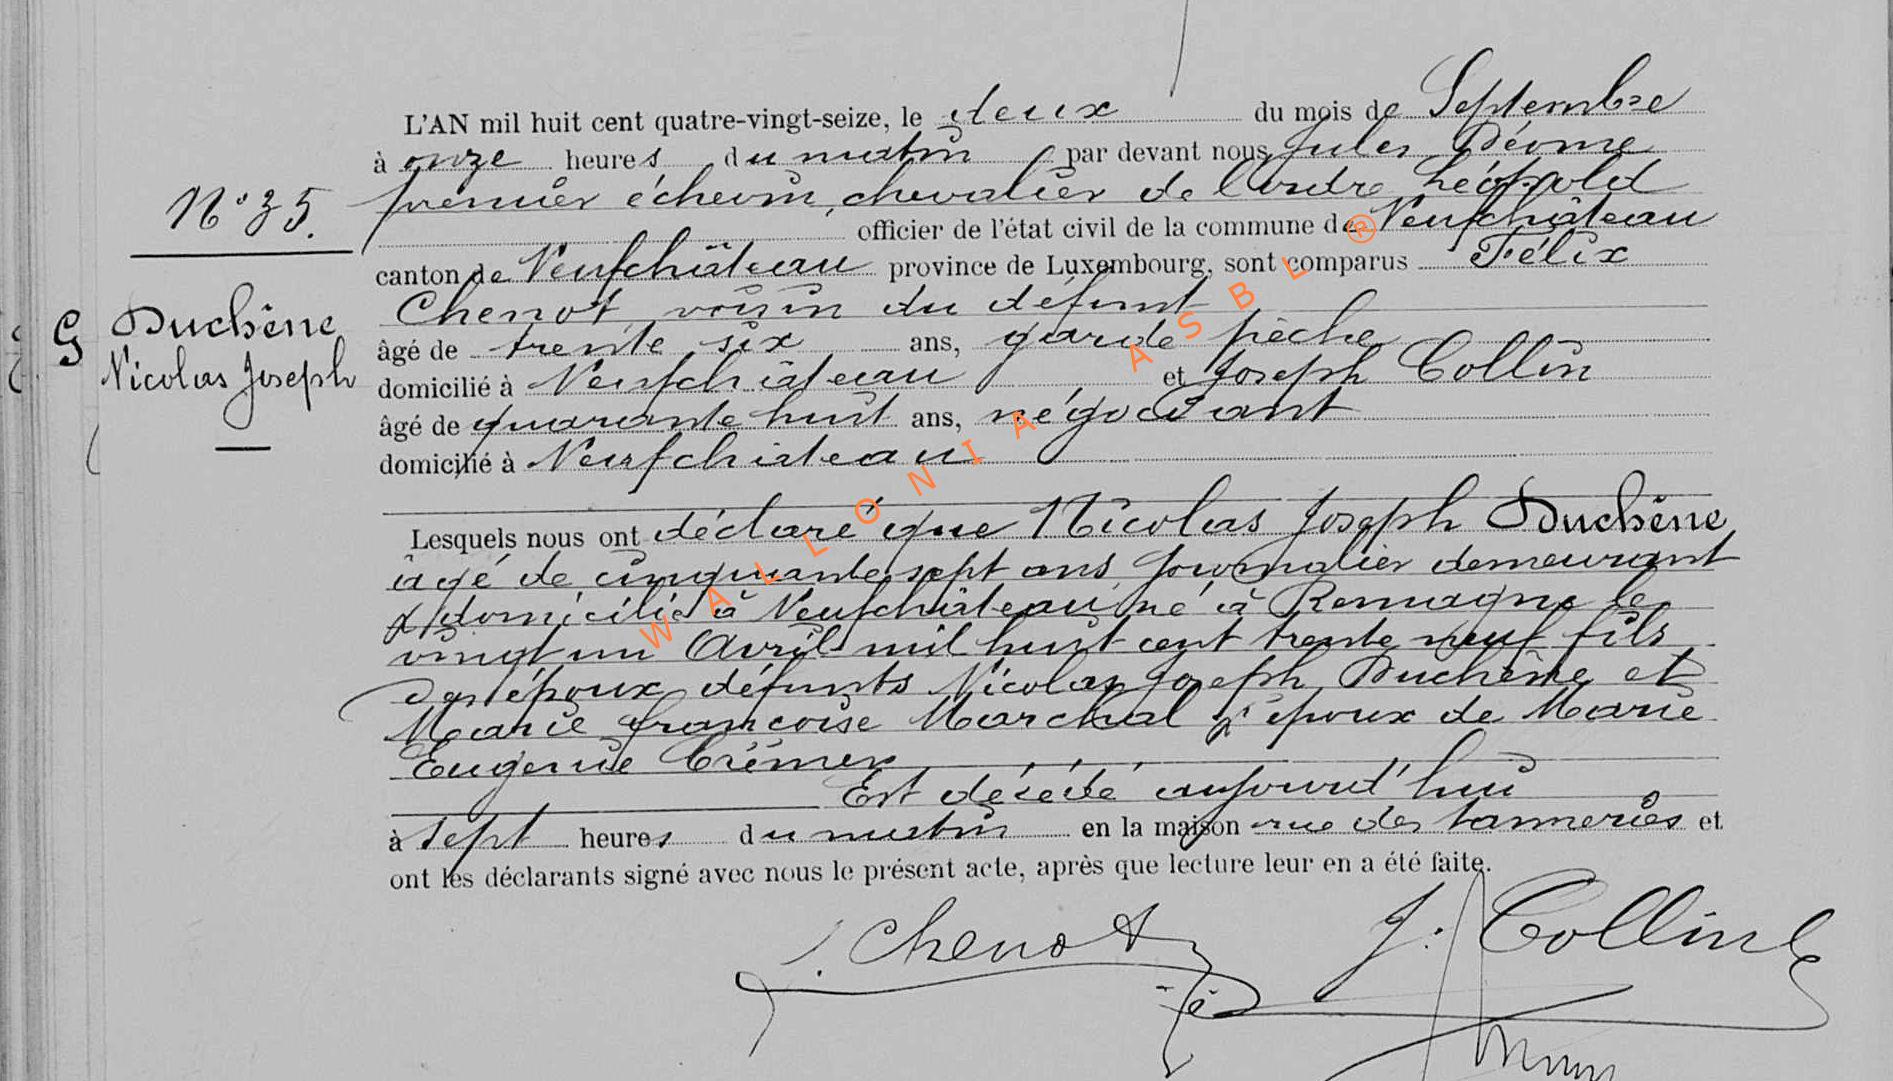 L'AN mil huit cent quatre-vingt-seize, le deux du mois de Septembre
à onze heures du matin par devant nous Jules Déome
premier échevin, chevalier de l'ordre Léopold
N° 35.
officier de l'état civil de la commune de Neufchâteau
canton de Neufchâteau province de Luxembourg, sont comparus Félix
Chenot, voisin du défunt
âgé de trente six ans, garde pêche
domicilié à Neufchâteau et Joseph Collin
âgé de quarante huit ans, négociant
domicilié à Neufchateau
G Duchêne
Nicolas Joseph
Lesquels nous ont déclaré que Nicolas Joseph Duchêne
âgé de cinquante sept ans journalier demeurant
& domicilié à Neufchâteau, né à Remagne le
vingt un Avril mil huit cent trente neuf fils
des époux défunts Nicolas Joseph Duchêne et
Marie françoise Marchal, époux de Marie
Eugenie Crémer
Est décédé aujourd'hui
à sept heures du matin en la maison rue des tanneries et
ont les déclarants signé avec nous le présent acte, après que lecture leur en a été faite.
Chenot J. Collin
WALLONIA ASBL ®